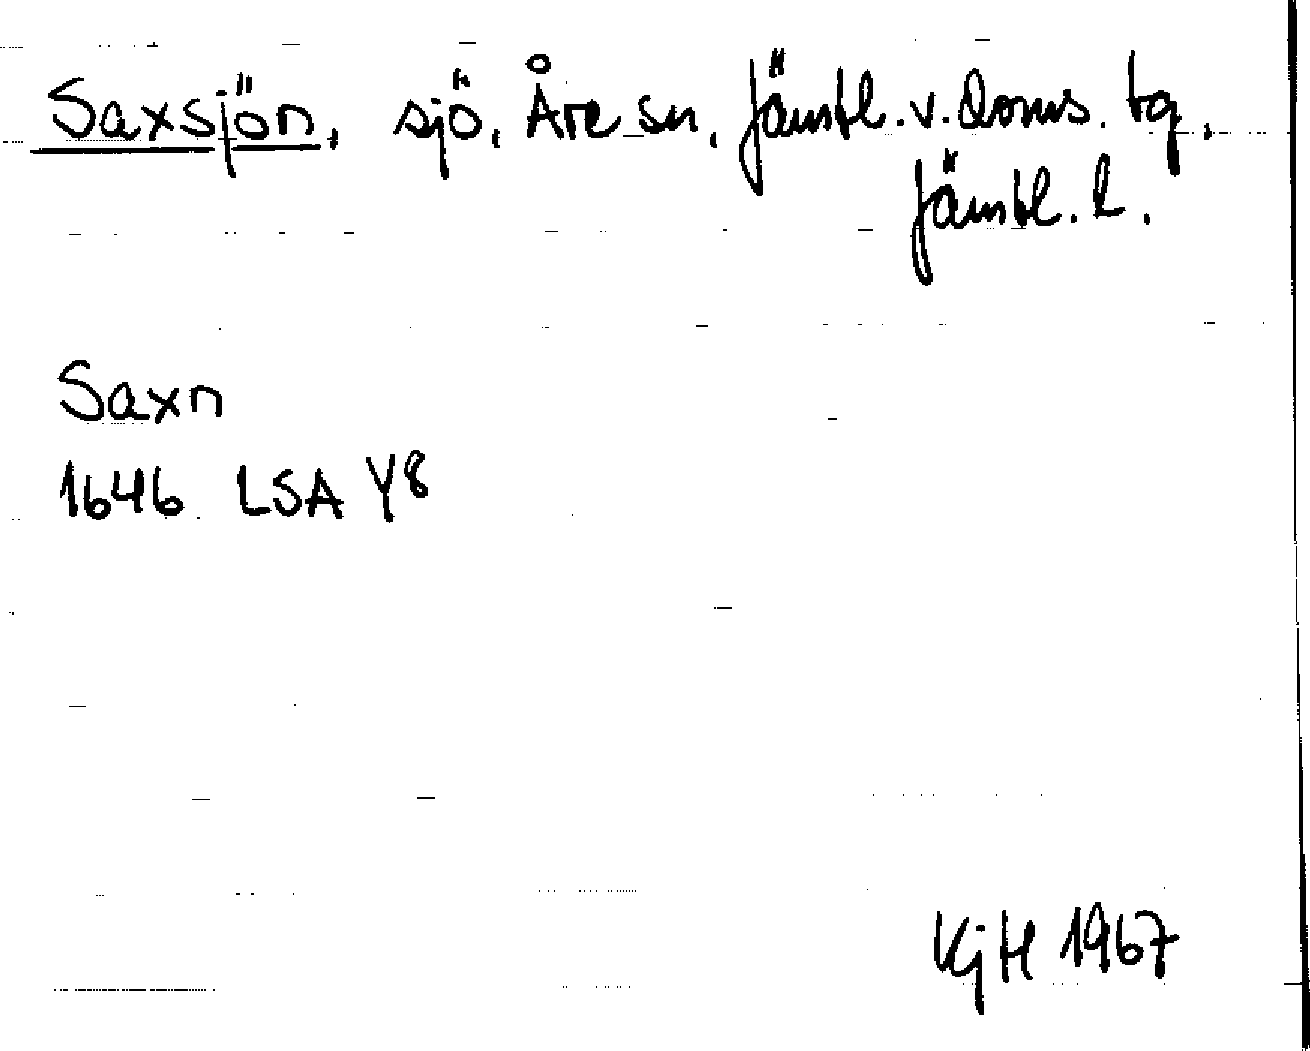 Saxsjön, sjö, Åre sn, Jämtl. v. doms. tg,
Jämtl. l.
Saxn
1646 LSA Y8
KjH 1967